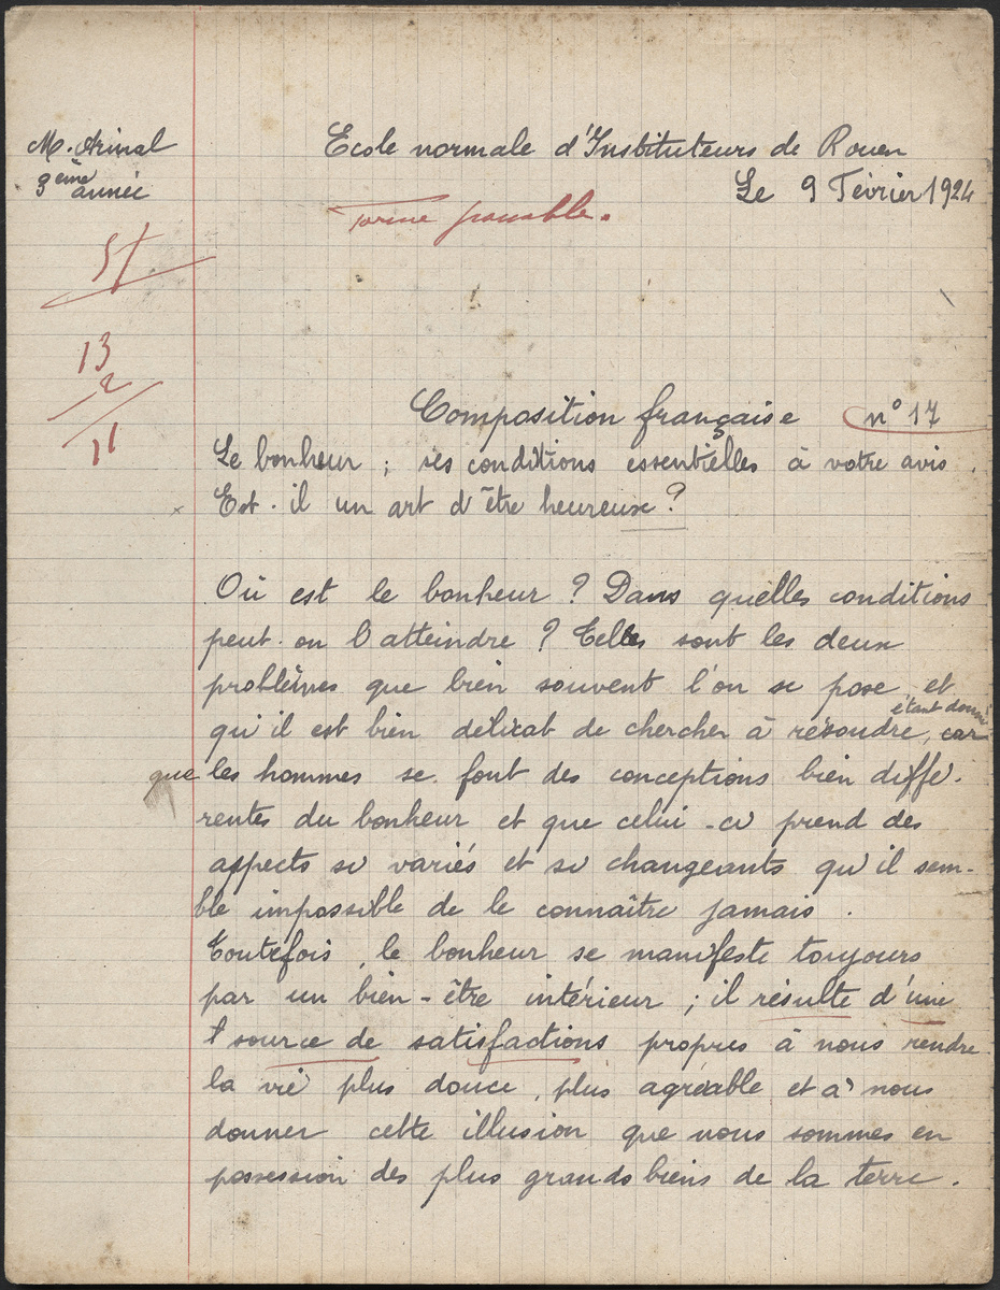 M. Arinal
3ème année
Ecole normale d'Instituteurs de Rouen
Le 9 Février 1924
Forme passable.
13
2
11
Composition française n° 17
Le bonheur ; ses conditions essentielles à votre avis.
Est-il un art d'être heureux ?
Où est le bonheur ? Dans quelles conditions
peut-on l'atteindre ? Telles sont les deux
problèmes que bien souvent l'on se pose et
étant donné
qu'il est bien délicat de chercher à résoudre, car
que les hommes se font des conceptions bien diffé-
rentes du bonheur et que celui-ci prend des
aspects si variés et si changeants qu'il sem-
ble impossible de le connaître jamais.
Toutefois, le bonheur se manifeste toujours
par un bien-être intérieur ; il résulte d'une
source de satisfactions propres à nous rendre
la vie plus douce, plus agréable et à nous
donner cette illusion que nous sommes en
possession des plus grands biens de la terre.